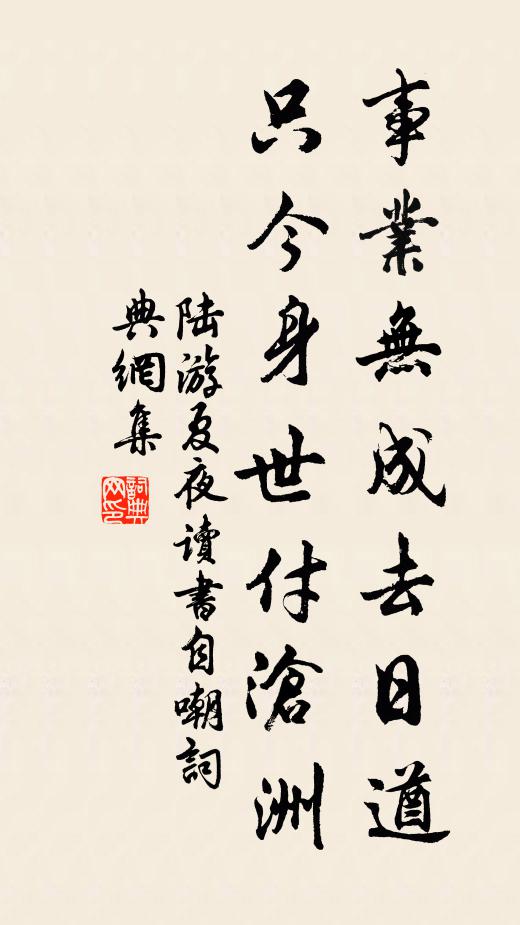 事業無成去日遒
只今身世付滄洲
陆游夏夜讀書自嘲詞
典網集
詞典网印